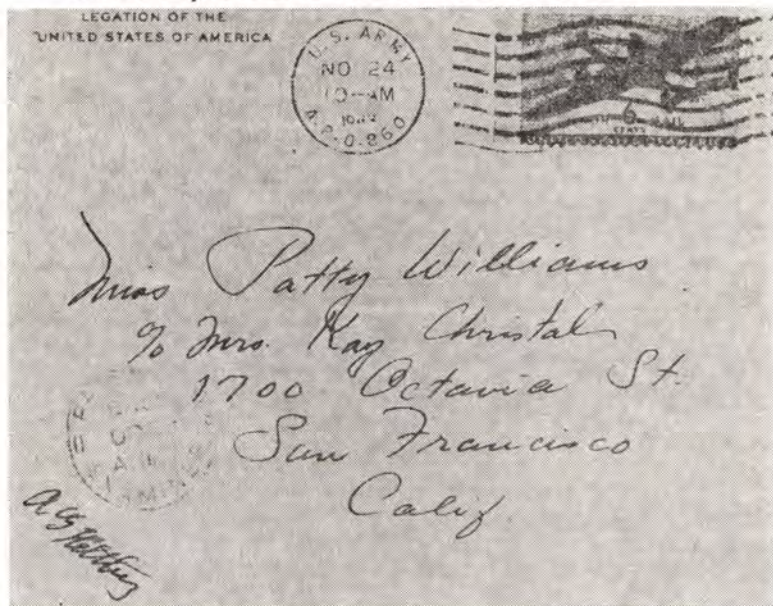 LEGATION OF THE
UNITED STATES OF AMERICA
U.S. ARMY
NO 24
10-AM
A.P.O. 860
6
CENTS
Miss Patty Williams
% Mrs. Kay Christal
1700 Octavia St.
San Francisco
Calif